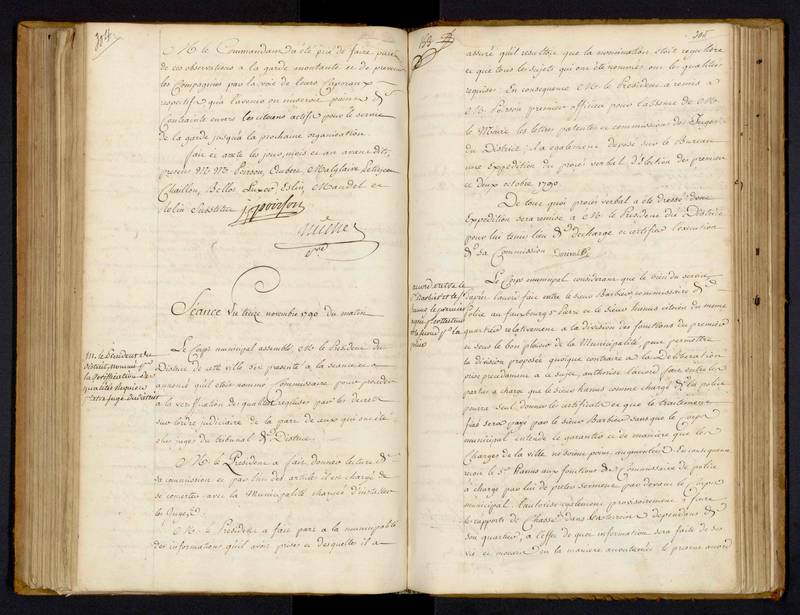 304
M. le Commandant a été prié de faire part
de ces observations a la garde montante et de prevenir
les Compagnies par la voie de leurs Caporaux
respectif qu'a l'avenir on n'useroit point de
Contrainte envers les citoiens actifs pour le service
de la garde jusqu'a la prochaine organisation.
fait et areté les jour, mois et an avant dits,
presens M. M. Poirson, Aubert, Malglaive
Chaillon, Bellot, Eslin, Mandel et
Substitut
Séance du treize novembre 1790 du matin
Le Corps municipal assemblé, M. le President du
District de cette ville s'est presenté a la seance et a
annoncé qu'il etoit nommé Commissaire pour proceder
a la verification des qualités requises par les decrets
sur l'ordre judiciaire de la part de ceux qui ont été
elus juges du tribunal de District.
M. le President du
District, nommé pr
la verification des
qualités requises
M. le President a fait donner lecture de
sa commission et par l'un des articles il est chargé de
se concerter avec la Municipalité chargée d'installer
les Juges.
M. le President a fait part a la municipalité
des informations qu'il avoit prises et desquelles il a
305
assuré qu'il resultoit que la nomination etoit reguliere
et que tous les sujets qui ont été nommés ont les qualités
requises. En consequence M. le President a remis a
M. Poirson premier officier pour l'absence de M.
le Maire les lettres patentes et commissions des Juges
du District; il a egalement deposé sur le Bureau
une Expedition du procès verbal d'Election des premier
et deux octobre 1790.
De tout quoi procès verbal a été dressé dont
Expedition sera remise a M. le President du District
pour lui tenir lieu de decharge et certifier l'execution
de sa Commission
Le Corps municipal considerant que le bien du service
d'après l'accord fait entre le sieur Barbier commissaire de
Police au faubourg St Pierre et le sieur hanus citoien du meme
quartier relativement a la division des fonctions du premier
et sous le bon plaisir de la Municipalité, peut permettre
la division proposée quoique contraire a la Deliberation
prise precedament a ce sujet, authorise l'accord fait entre les
parties a charge que le sieur hanus comme chargé de la police
pourra seul donner les certificats et que le traitement
fixé sera payé par le sieur Barbier sans que le Corps
municipal entende le garantir et de maniere que les
Charges de la ville ne soient point augmentées. En consequence
reçoit le Sr hanus aux fonctions de Commissaire de police
a charge par lui de preter serment par devant le Corps
municipal. l'autorise egalement provisoirement a faire
les rapports de Chasse dans dependans de
son quartier, a l'effet de quoi information sera faite de ses
vie et moeurs en la maniere accoutumée, le present accord